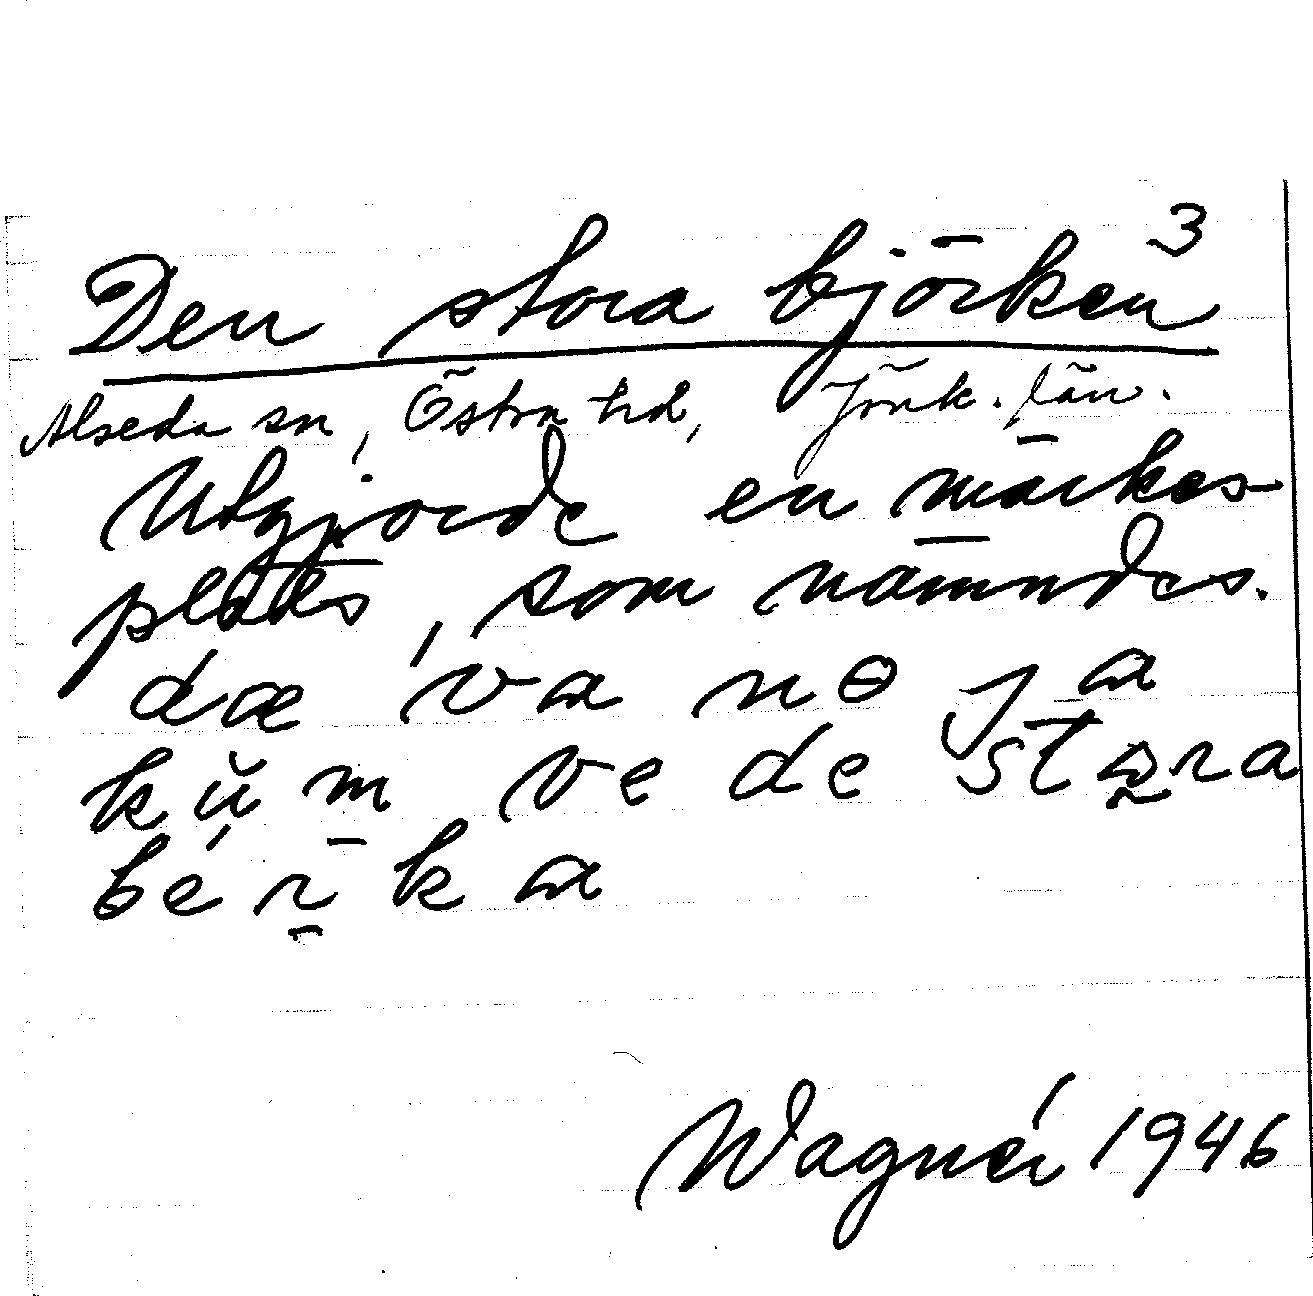 3
Den stora björken
Alseda sn, Östra hd, Jönk. län.
Utgjorde en märkes-
plats, som nämndes.
dæ va nɵ ja
kŭm ve de stɷra
be̍rka
Wagnér 1946